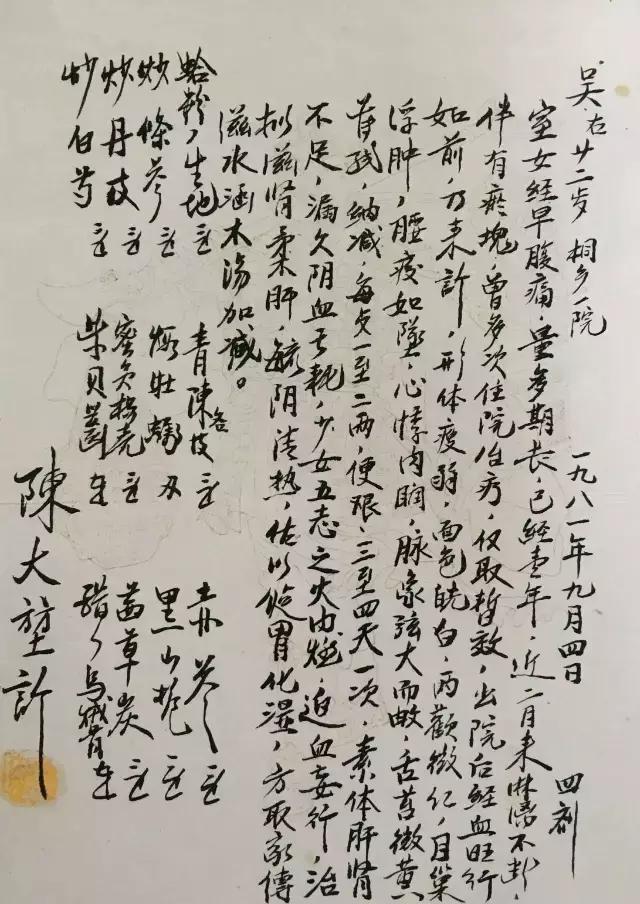 吴右 廿二岁 桐乡一院 一九八一年九月四日 四剂
室女经早腹痛，量多期长，已经壹年，近二月来淋漓不断，
伴有瘀块，曾多次住院治疗，仅取暂效，出院后经血旺行
如前，乃来诊，形体疲弱，面色㿠白，两颧微红，目窠
浮肿，腰痠如坠，心悸内烦，脉象弦大而芤，舌苔微黄
纳减，每贞一至二两，便艰，三至四天一次，素体肝肾
不足，漏久阴血亏耗，少女五志之火内燃，迫血妄行，治
拟滋肾柔肝，毓阴清热，佐以馅胃化湿，方取家传
滋水涵木汤加减。
蛤粉 生地 青陈各 赤参
炒條参 煅牡蛎 黑山栀
炒丹皮 壳 茜草炭
炒白芍 紫贝齿 醋 乌贼骨
陳大堃診